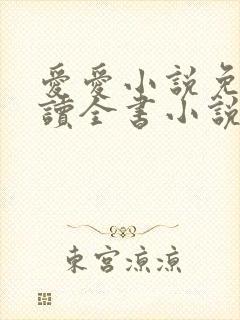 愛愛小説免
讀全書小說
東宮涼涼